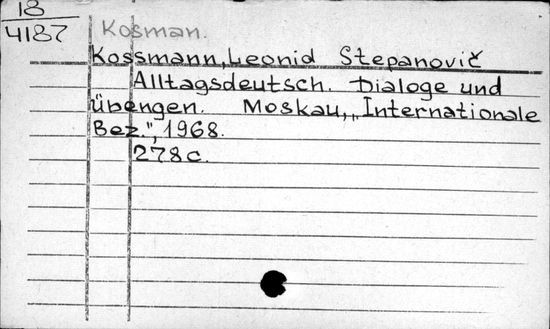 18
4187
Kosman.
Kossmann, Leonid Stepanovič
Alltagsdeutsch. Dialoge und
Übengen. Moskau, „Internationale
Bez.", 1968.
278c.